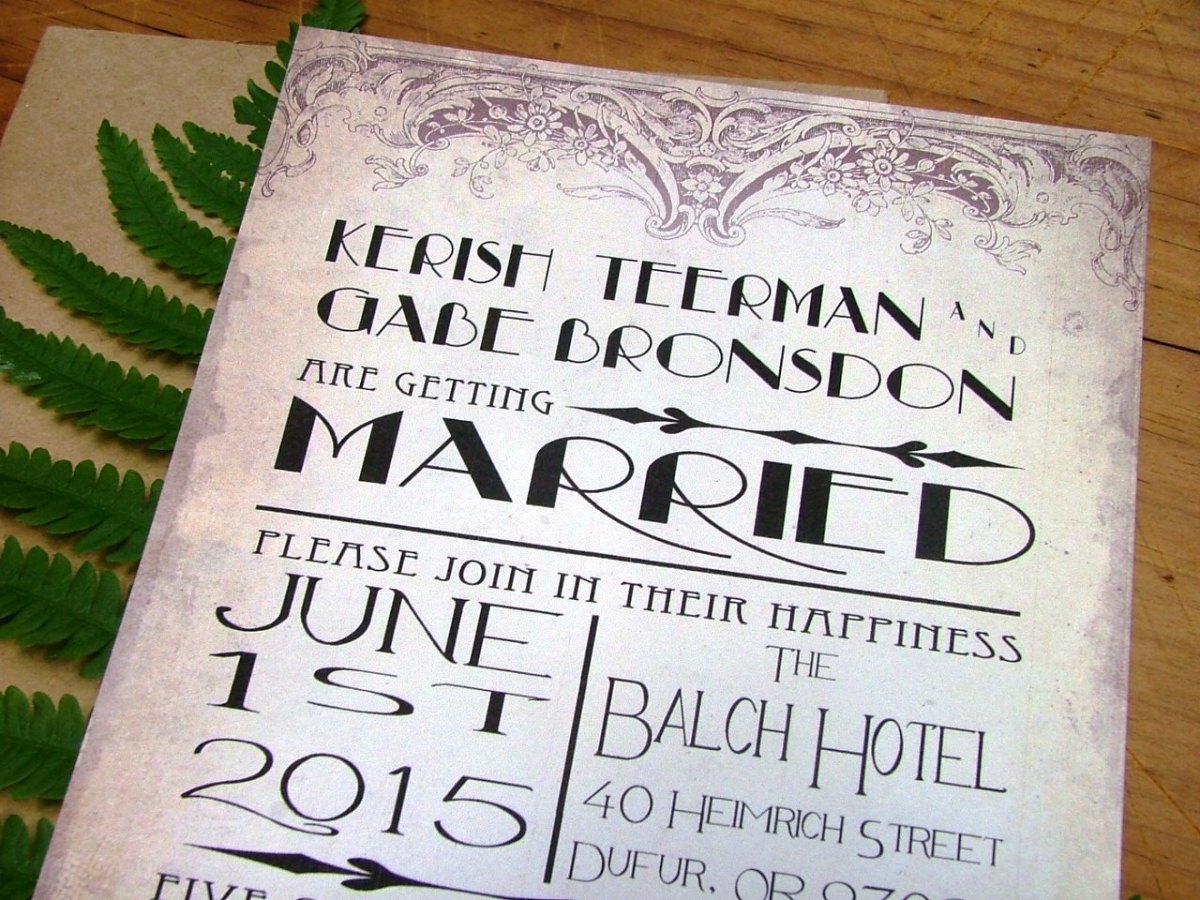 KERISH TEERMAN AND
GABE BRONSDON
ARE GETTING
MARRIED
PLEASE JOIN IN THEIR HAPPINESS
JUNE
1ST
2015
THE
BALCH HOTEL
40 HEIMRICH STREET
DUFUR, OR
FIVE